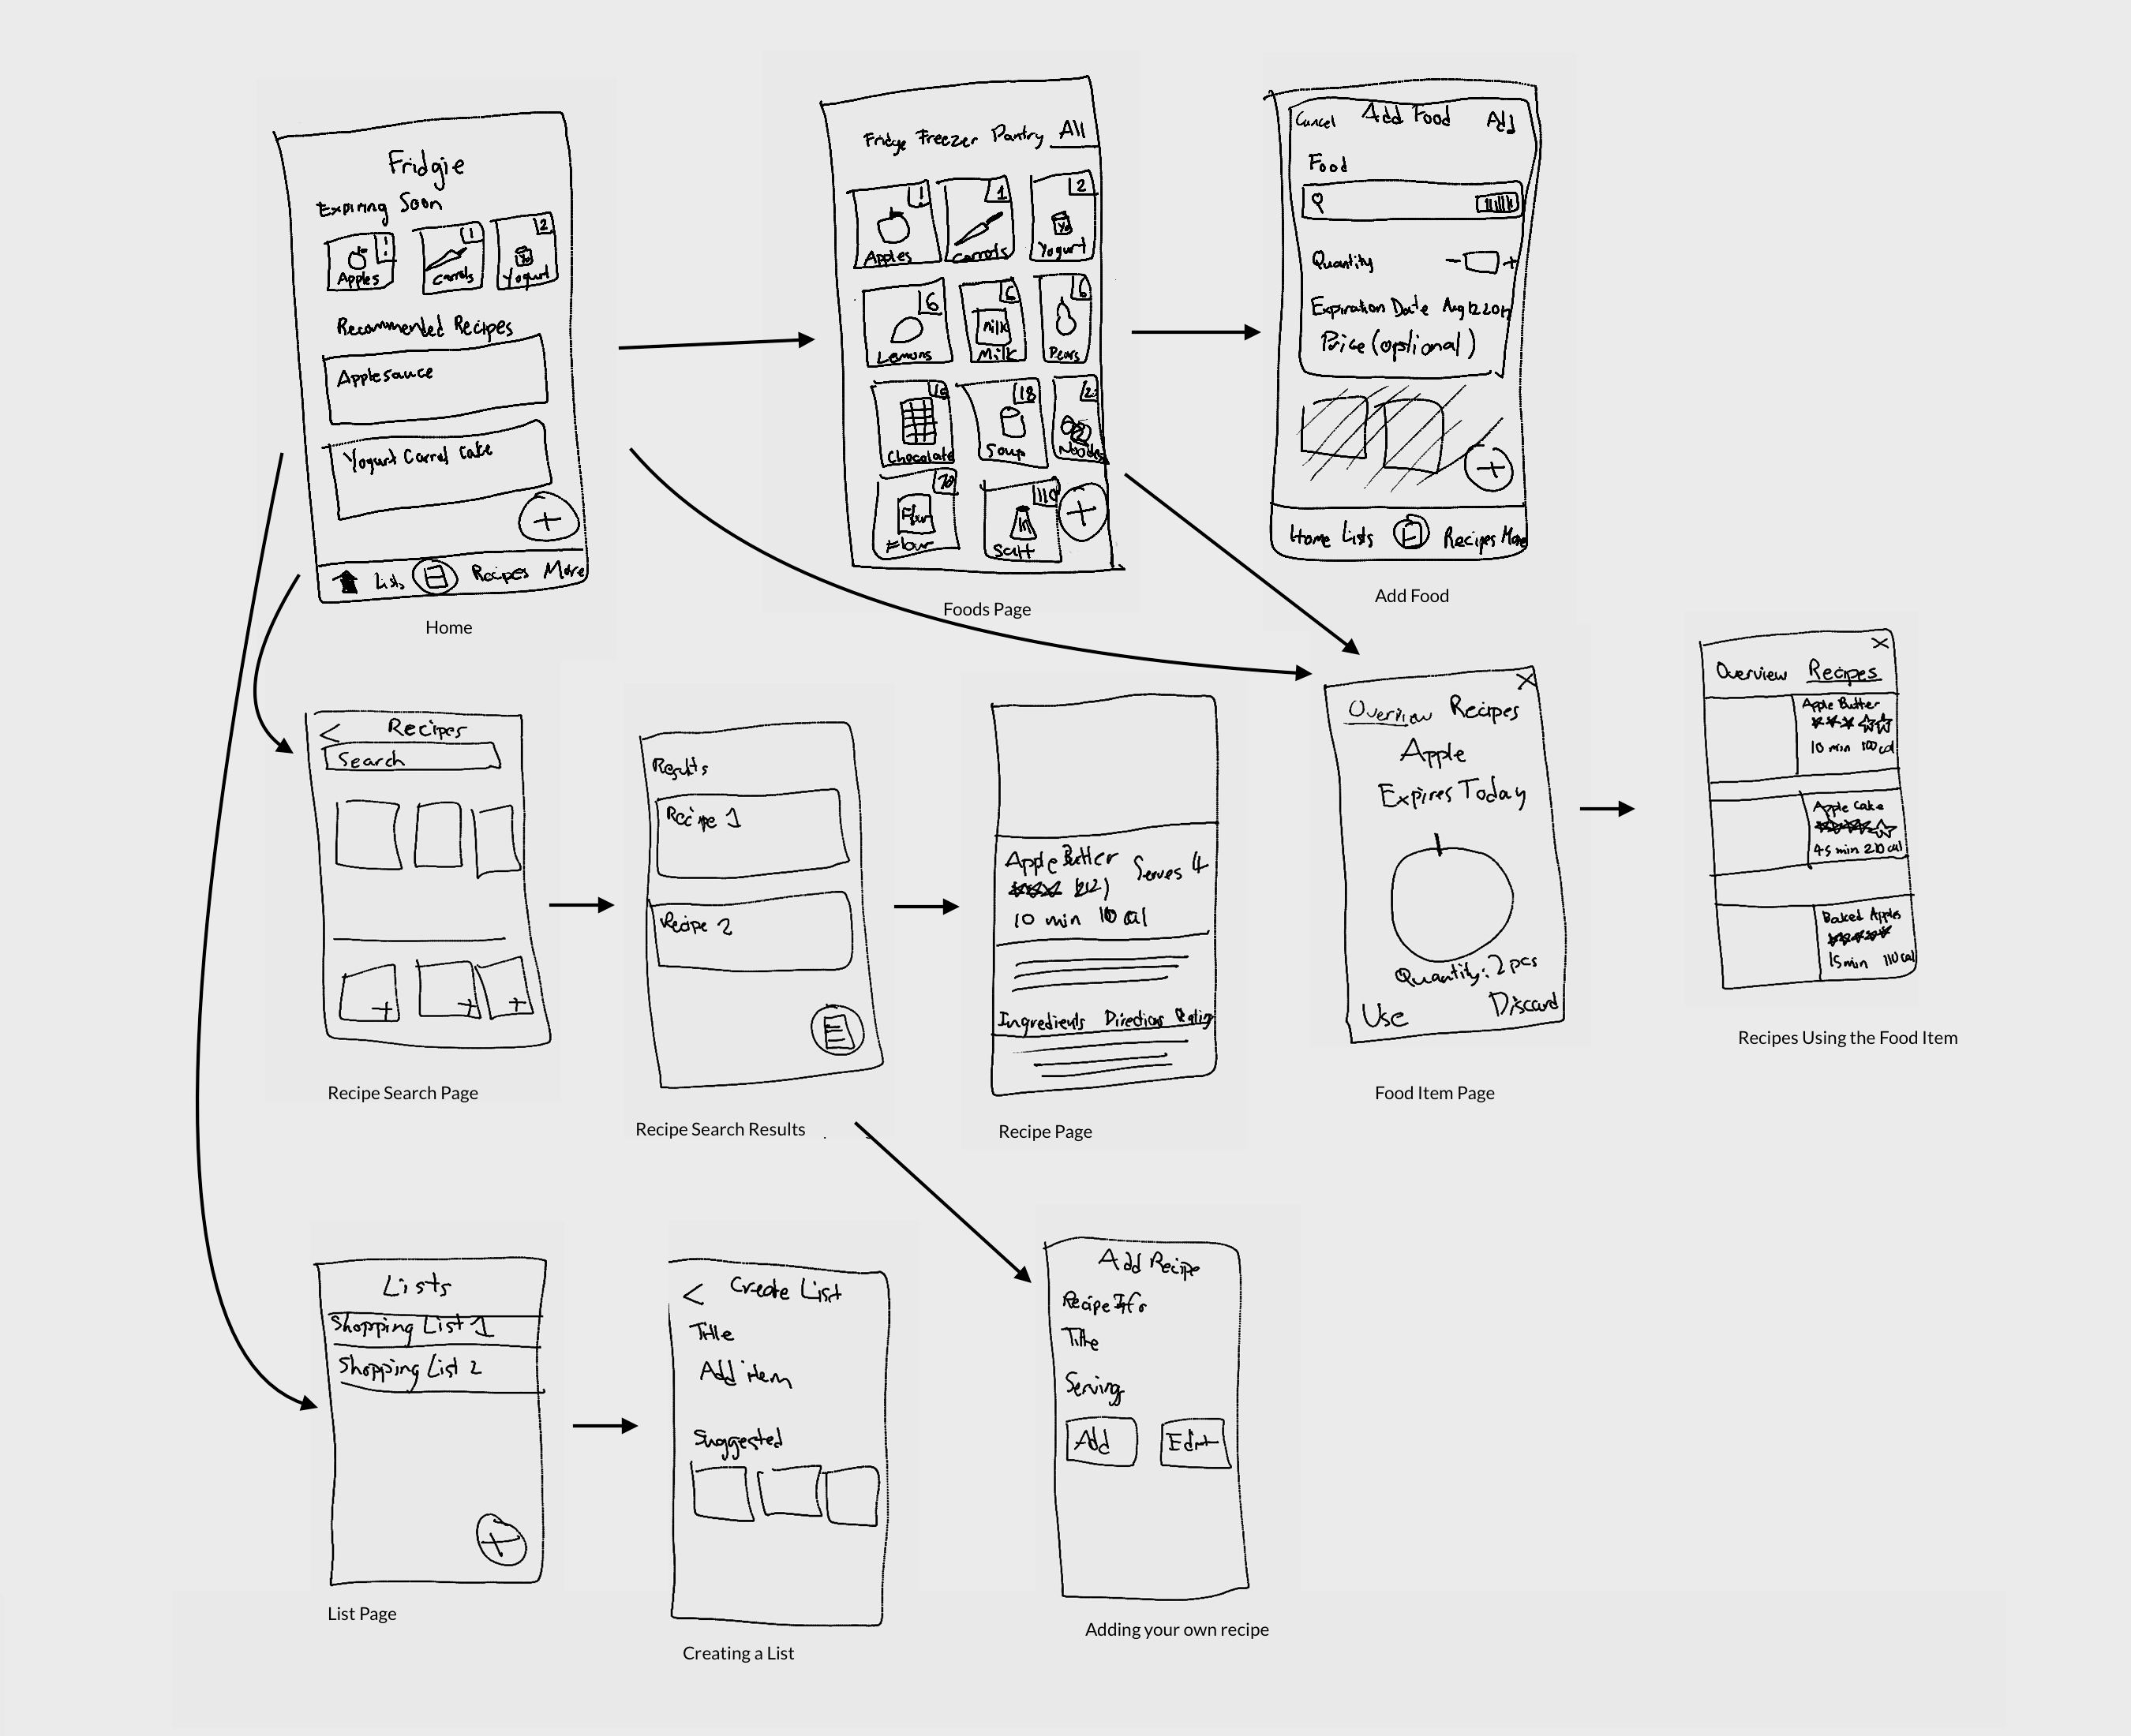 Fridgie
Expiring Soon
! 1 2
Apples Carrots Yogurt
Recommended Recipes
Applesauce
Yogurt Carrot Cake
+
Lists Recipes More
Home
Fridge Freezer Pantry All
! 1 2
Apples Carrots Yogurt
6 6 6
Milk
Lemons Milk Pears
15 18 2
Chocolate Soup Noodles
70 110
Flour
Flour Salt
+
Foods Page
Cancel Add Food Add
Food
Quantity - +
Expiration Date Aug 12 2017
Price (optional)
+
Home Lists Recipes More
Add Food
< Recipes
Search
+ + +
Recipe Search Page
Results
Recipe 1
Recipe 2
Recipe Search Results
Apple Butter Serves 4
(212)
10 min 110 cal
Ingredients Directions Rating
Recipe Page
X
Overview Recipes
Apple
Expires Today
Quantity: 2 pcs
Use Discard
Food Item Page
X
Overview Recipes
Apple Butter
10 min 100 cal
Apple Cake
45 min 210 cal
Baked Apples
15 min 110 cal
Recipes Using the Food Item
Lists
Shopping List 1
Shopping List 2
+
List Page
< Create List
Title
Add item
Suggested
Creating a List
Add Recipe
Recipe Info
Title
Serving
Add Edit
Adding your own recipe